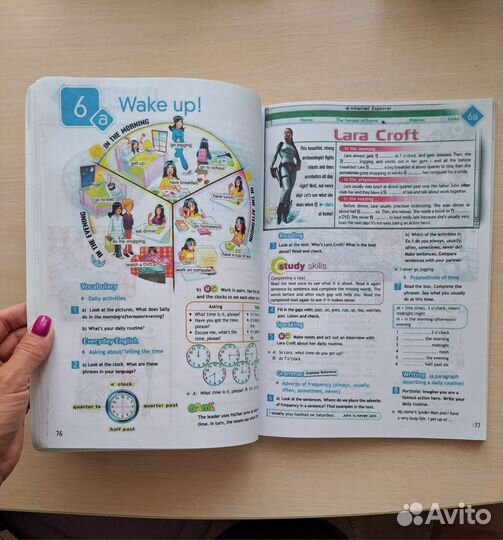 6a
Wake up!
IN THE MORNING
go jogging
get up
go to school
have breakfast
IN THE AFTERNOON
have lunch
do homework
have a cup of tea
work on computer
IN THE EVENING
go to bed
eat dinner
do the shopping
watch a DVD
Vocabulary
Daily activities
1 a) Look at the pictures. What does Sally
do in the morning/afternoon/evening?
b) What's your daily routine?
Everyday English
Asking about/Telling the time
2 a) Look at the clock. What are these
phrases in your language?
o' clock
quarter to
quarter past
half past
b) Work in pairs. Use the
and the clocks to ask
Asking
What time is it, please?
Have you got the time,
please?
Excuse me, what's the
time, please?
A: What time is it, please?
GAME
The leader uses his/her arms
time. In turn, the teams say
76
Internet Explorer
6a
Home
The heroes of games
Movies
Links
Lara Croft
This beautiful, strong
archaeologist fights
robots and does
acrobatics all day,
right? Well, not every
day! Let's see what she
does when 0) is she's
at home!
In the morning
Lara always gets 1) at 7 o'clock, and gets dressed. Then, she
2) jogging and works out in her gym – and all this before
breakfast! Lara 3) a big breakfast at about quarter to nine, then she
sometimes goes shopping or works 4) her computer for a while.
In the afternoon
Lara usually eats lunch at about quarter past one. Her father
visits her and they have a 5) of tea and talk about work together.
In the evening
Before dinner, Lara usually practises kickboxing. She eats dinner at
about half 6) six. Then, she relaxes. She reads a book or 7)
a DVD. She never 8) to bed really late because she's usually very
busy the next day! But it's not easy being an action hero!
Reading
3 Look at the text. Who's Lara Croft? What is the text
about? Read and check.
study skills
Completing a text
Read the text once to see what it is about. Read it again
sentence by sentence and complete the missing words. The
words before and after each gap will help you. Read the
completed text again to see if it makes sense.
4 Fill in the gaps with: past, on, goes, cup, up, has, watches,
goes. Listen and check.
Speaking
5 Make notes and act out an interview with
Lara Croft about her daily routine.
A: So Lara, what time do you get up?
B: At 7 o'clock.
Grammar
Grammar Reference
Adverbs of frequency (always, usually,
often, sometimes, never)
6 a) Look at the sentences. Where do we place the adverbs
of frequency in a sentence? Find examples in the text.
I usually play football on Saturdays.
John is never late.
b) Which of the activities in
Ex.1 do you always, usually,
often, sometimes, never do?
Make sentences. Compare
sentences with your partner.
I never go jogging.
Prepositions of time
7 Read the box. Complete the
phrases. Say what you usually
do at this time.
at + (the time), 3 o'clock, noon/
midnight/night
in + the morning/afternoon/
evening
1 5 o'clock
2 the morning
3 midnight
4 noon
5 the evening
6 half past six
Writing (a paragraph
describing a daily routine)
8 Portfolio: Imagine you are a
famous action hero. Write your
daily routine.
My name's Spider Man and I have
a very busy life. I get up at ...
77
Avito